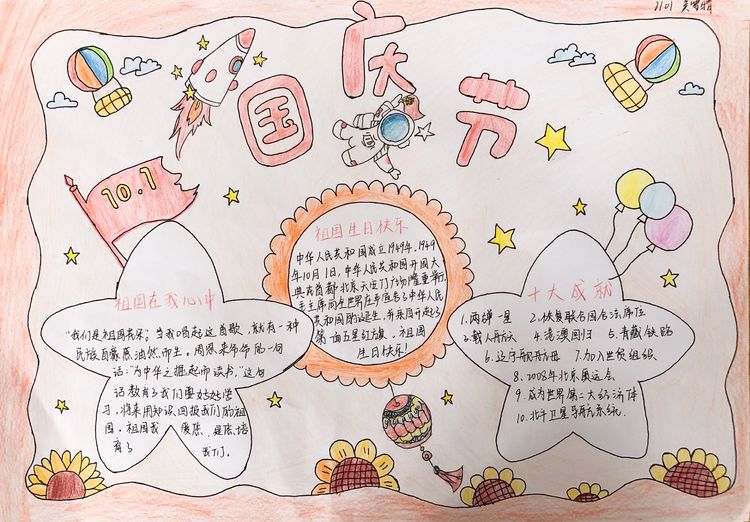 1101
国庆节
10.1
祖国在我心中
"我们是祖国花朵"当我唱起这首歌,就有一种
民族自豪感油然而生。周恩来爷爷的一句
话:"为中华之掘起而读书。"这句
话教育了我们要好好学
习,将来用知识回报我们的祖
国。祖国我
是您培
育了
我们。
祖国生日快乐
中华人民共和国成立1949年,1949
年10月1日,中华人民共和国开国大
典在首都北京天安门广场隆重举行.
毛主席向全世界庄严宣告了中华人民
共和国的诞生,并亲自升起了
第一面五星红旗。祖国
生日快乐!
十大成就
1.两弹一星 2.恢复联合国合法席位
3.载人航天 4.港澳回归 5.青藏铁路
6.辽宁号航母 7.加入世贸组织
8.2008年北京奥运会
9.成为世界第二大经济体
10.北斗卫星导航系统.